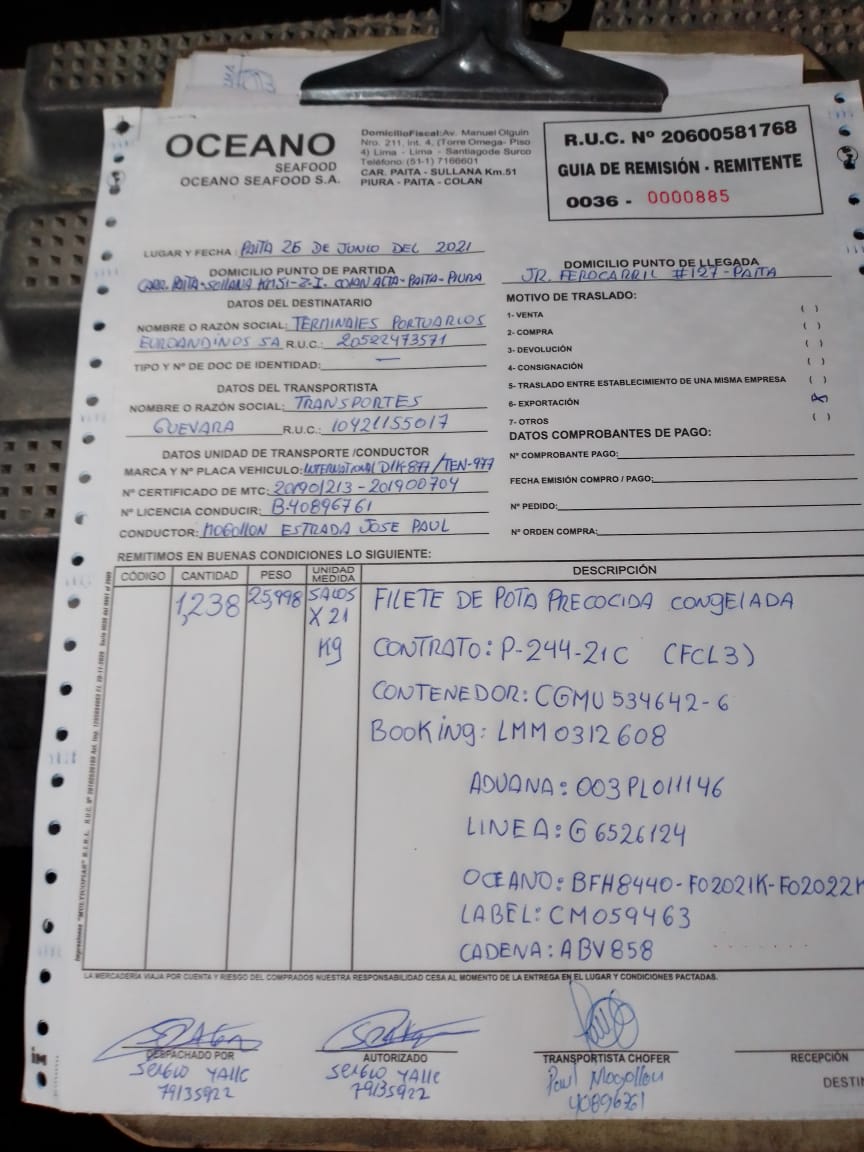 OCEANO
SEAFOOD
OCEANO SEAFOOD S.A.
DomicilioFiscal: Av. Manuel Olguin
Nro. 211, Int. 4, (Torre Omega- Piso
4) Lima - Lima - Santiagode Surco
Teléfono: (51-1) 7166601
CAR. PAITA - SULLANA Km.51
PIURA - PAITA - COLAN
R.U.C. Nº 20600581768
GUIA DE REMISIÓN - REMITENTE
0036 - 0000885
LUGAR Y FECHA: PAITA 26 DE JUNIO DEL 2021
DOMICILIO PUNTO DE PARTIDA
CARR. PAITA-SULLANA KM.51-Z.I. COLAN ALTA-PAITA-PIURA
DOMICILIO PUNTO DE LLEGADA
JR. FEROCARRIL #127-PAITA
DATOS DEL DESTINATARIO
NOMBRE O RAZÓN SOCIAL: TERMINALES PORTUARIOS
EUROANDINOS SA R.U.C.: 20522473571
TIPO Y Nº DE DOC DE IDENTIDAD: —
DATOS DEL TRANSPORTISTA
NOMBRE O RAZÓN SOCIAL: TRANSPORTES
GUEVARA R.U.C.: 10421155017
DATOS UNIDAD DE TRANSPORTE /CONDUCTOR
MARCA Y Nº PLACA VEHICULO: INTERNATIONAL D1K877/TEN-977
Nº CERTIFICADO DE MTC: 201901213-201900704
Nº LICENCIA CONDUCIR: B-40896761
CONDUCTOR: MOGOLLON ESTRADA JOSE PAUL
MOTIVO DE TRASLADO:
1- VENTA ( )
2- COMPRA ( )
3- DEVOLUCIÓN ( )
4- CONSIGNACIÓN ( )
5- TRASLADO ENTRE ESTABLECIMIENTO DE UNA MISMA EMPRESA ( )
6- EXPORTACIÓN (X)
7- OTROS ( )
DATOS COMPROBANTES DE PAGO:
Nº COMPROBANTE PAGO:
FECHA EMISIÓN COMPRO / PAGO:
Nº PEDIDO:
Nº ORDEN COMPRA:
REMITIMOS EN BUENAS CONDICIONES LO SIGUIENTE:
CÓDIGO CANTIDAD PESO UNIDAD MEDIDA DESCRIPCIÓN
1,238 25,998 SACOS FILETE DE POTA PRECOCIDA CONGELADA
X 21
Kg CONTRATO: P-244-21C (FCL3)
CONTENEDOR: CGMU 534642-6
BOOKING: LMM0312608
ADUANA: 003PL011146
LINEA: G6526124
OCEANO: BFH8440-F02021K-F02022K
LABEL: CM059463
CADENA: ABV858
LA MERCADERÍA VIAJA POR CUENTA Y RIESGO DEL COMPRADOS NUESTRA RESPONSABILIDAD CESA AL MOMENTO DE LA ENTREGA EN EL LUGAR Y CONDICIONES PACTADAS.
DESPACHADO POR
SERGIO YALLE
79135922
AUTORIZADO
SERGIO YALLE
79135922
TRANSPORTISTA CHOFER
Paul Mogollon
40896761
RECEPCIÓN
DESTIN